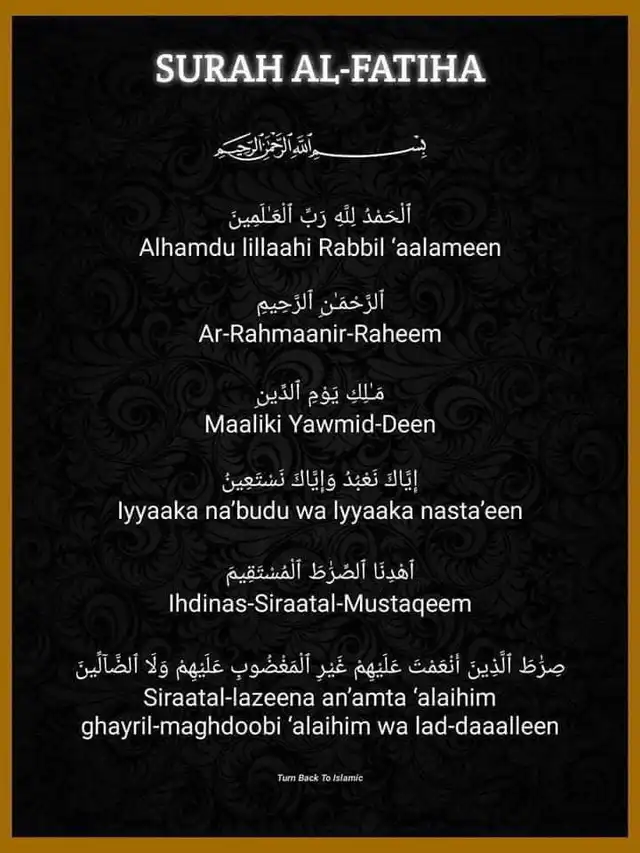 SURAH AL-FATIHA
بِسْمِ ٱللَّهِ ٱلرَّحْمَٰنِ ٱلرَّحِيمِ
ٱلْحَمْدُ لِلَّهِ رَبِّ ٱلْعَـٰلَمِينَ
Alhamdu lillaahi Rabbil ‘aalameen
ٱلرَّحْمَـٰنِ ٱلرَّحِيمِ
Ar-Rahmaanir-Raheem
مَـٰلِكِ يَوْمِ ٱلدِّينِ
Maaliki Yawmid-Deen
إِيَّاكَ نَعْبُدُ وَإِيَّاكَ نَسْتَعِينُ
Iyyaaka na’budu wa Iyyaaka nasta’een
ٱهْدِنَا ٱلصِّرَٰطَ ٱلْمُسْتَقِيمَ
Ihdinas-Siraatal-Mustaqeem
صِرَٰطَ ٱلَّذِينَ أَنْعَمْتَ عَلَيْهِمْ غَيْرِ ٱلْمَغْضُوبِ عَلَيْهِمْ وَلَا ٱلضَّآلِّينَ
Siraatal-lazeena an’amta ‘alaihim
ghayril-maghdoobi ‘alaihim wa lad-daaalleen
Turn Back To Islamic